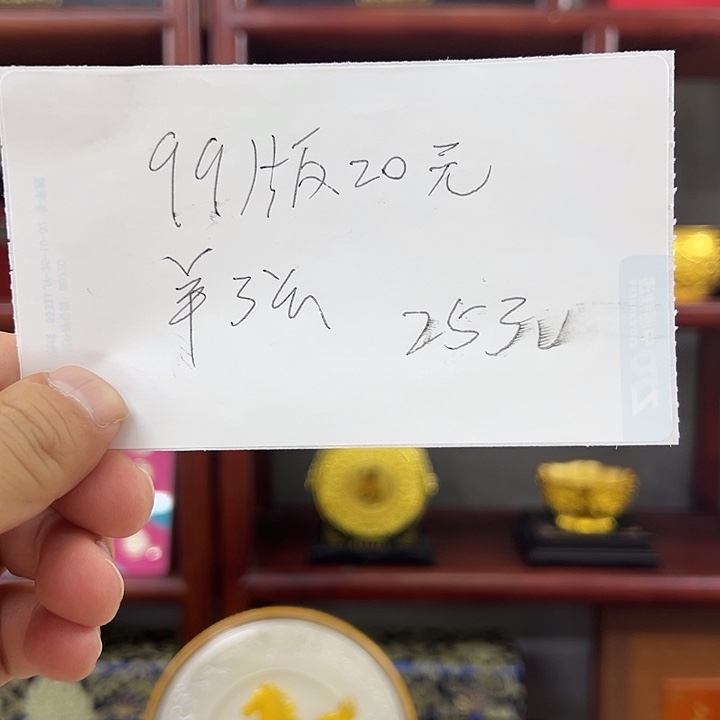 99版20元
单张 253